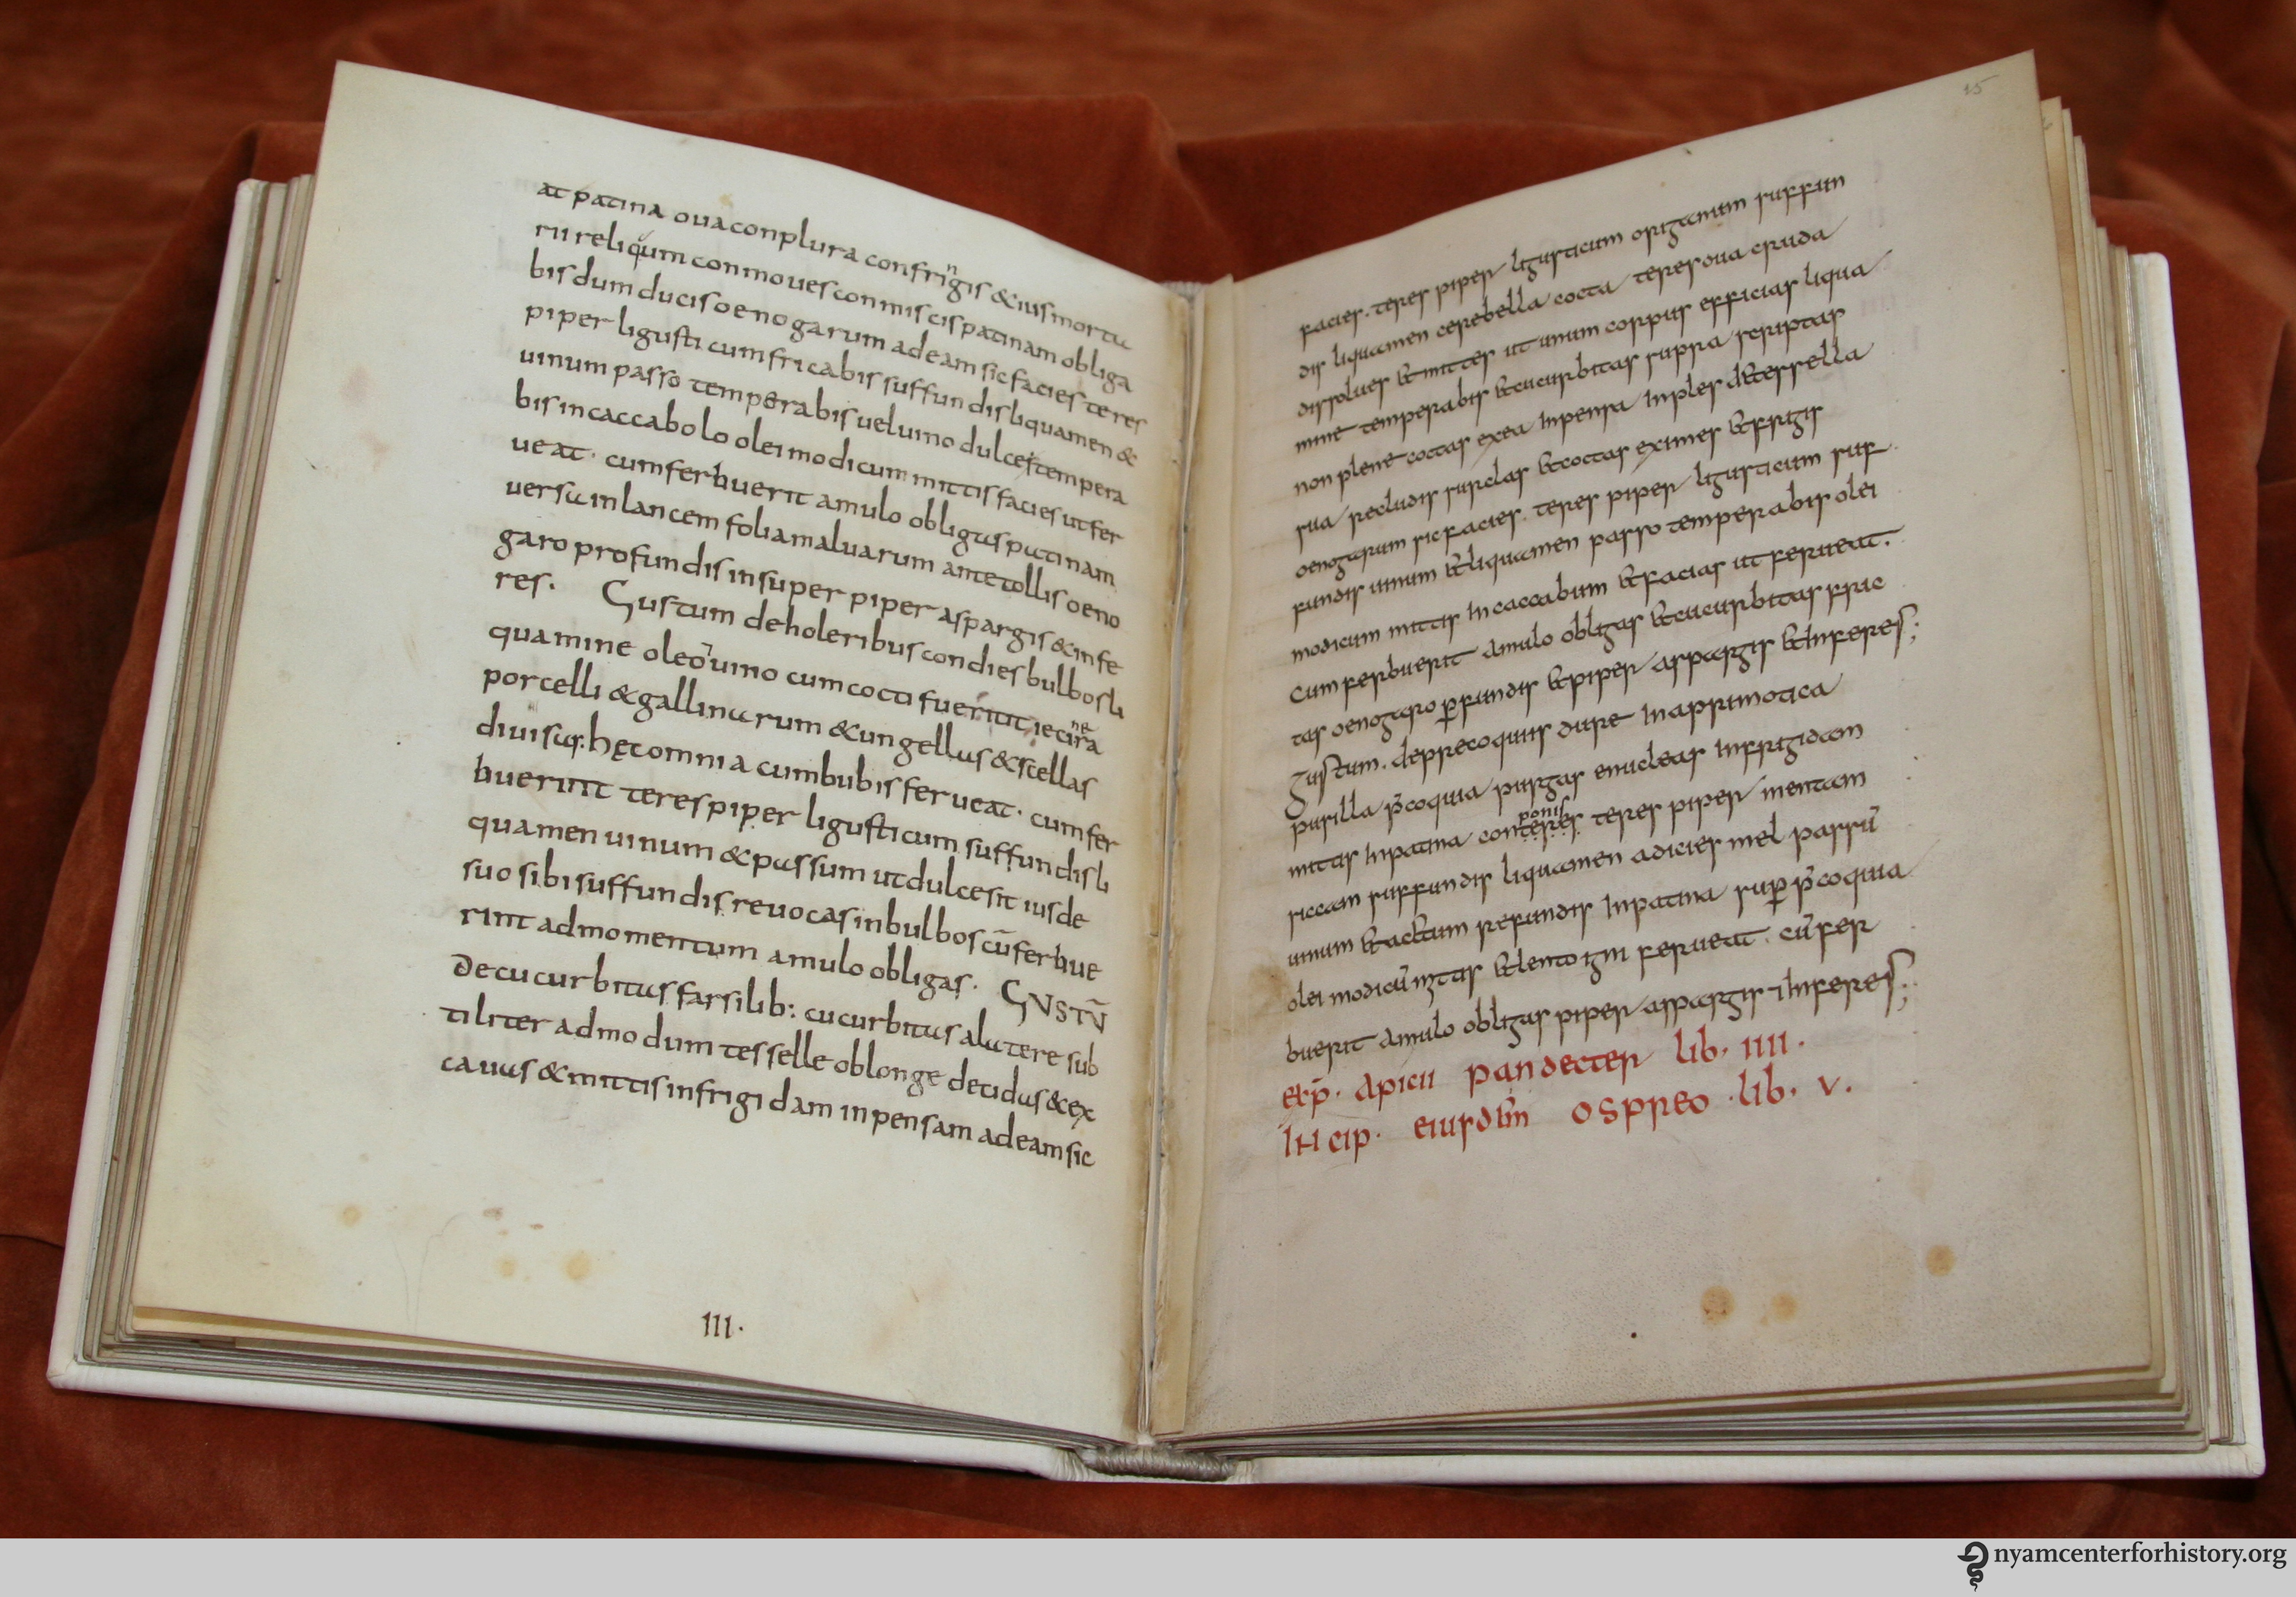 at patina oua conplura confringis & ius mortu
rii reliqum conmoues conmiscis patinam obliga
bis dum ducis oenogarum ad eam sic facies teres
piper ligusticum fricabis suffundis liquamen &
uinum passo temperabis uel uino dulcestempera
bis in caccabolo olei modicum mittis facies ut fer
ueat · cum ferbuerit amulo obligas patinam
uersa in lancem folia maluarum ante tollis oeno
garo profundis insuper piper aspargis & infe
res. Gustum de holeribus condies bulbos li
quamine oleo uino cum cocti fuerint iecinera
porcelli & gallinarum & ungellas & scellas
diuisas. hęc omnia cum bubis ferueat · cum fer
buerint teres piper ligusticum suffundis li
quamen uinum & passum ut dulce sit ius de
suo sibi suffundis reuocas in bulbos cū ferbue
rint ad momentum amulo obligas. GUSTŪ
de cucurbitas farsilib: cucurbitas a latere sub
tiliter ad modum tesselle oblonge decidas & ex
cauas & mittis in frigidam inpensam ad eam sic
111·
15
facies. teres piper ligusticum origanum suffun
dis liquamen cerebella cocta teres oua cruda
dissolues & mittes ut unum corpus efficias liqua
mine temperabis & cucurbitas supra scriptas
non plene coctas ex ea inpensa inples d& tessella
sua recludis surclas & coctas eximes & frigis
oenogarum sic facies. teres piper ligusticum suf
fundis uinum & liquamen passo temperabis olei
modicum mittis in caccabum & facias ut ferueat.
cum ferbuerit amulo obligas & cucurbitas fric
tas oenogaro ꝑfundis & piper aspargis & inferes;
Gustum. de precoquiis dure in aprimotica
pusilla p̄coquia purgas enucleas in frigidam
mittis in patina conteres ponis teres piper mentam
siccam suffundis liquamen adicies mel passū
uinum & ac&um refundis in patina suꝑ p̄coquia
olei modicū mittis & lento igni ferueat. cū fer
buerit amulo obligas piper aspargis ⁊ inferes;
exp̄. apicii pandecter lib. IIII.
Incip. eiusdem ospreo · lib. v.
nyamcenterforhistory.org